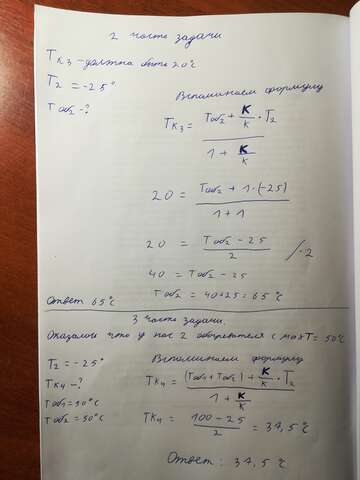 2 часть задачи
Tк3 - должна быть 20°C
T2 = -25°
Tоб2 - ?
Вспоминаем формулу
Tк3 = (Tоб2 + K/k · T2) / (1 + K/k)
20 = (Tоб2 + 1·(-25)) / (1 + 1)
20 = (Tоб2 - 25) / 2 /·2
40 = Tоб2 - 25
Tоб2 = 40+25 = 65°C
Ответ 65°C
3 часть задачи.
Оказалось что у нас 2 обогревателя с max T = 50°C
T2 = -25°
Tк4 - ?
Tоб1 = 50°C
Tоб2 = 50°C
Вспоминаем формулу
Tк4 = ((Tоб1 + Tоб2) + K/k · T2) / (1 + K/k)
Tк4 = (100 - 25) / 2 = 37,5°C
Ответ: 37,5°C